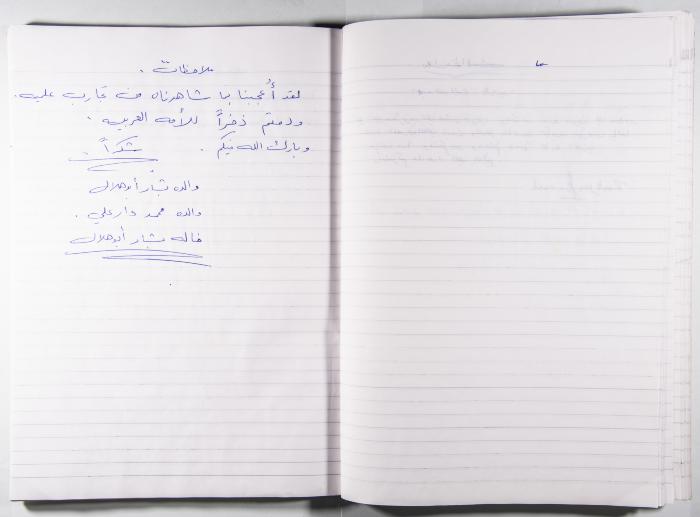 ملاحظات .
لقد أُعجبنا بما شاهدناه من تجارب علميه.
ودمتم ذخراً للأمه العربيه .
وبارك الله فيكم . شكراً .
والد بشار أبو هلال
والده محمد دار علي .
خاله بشار أبو هلال